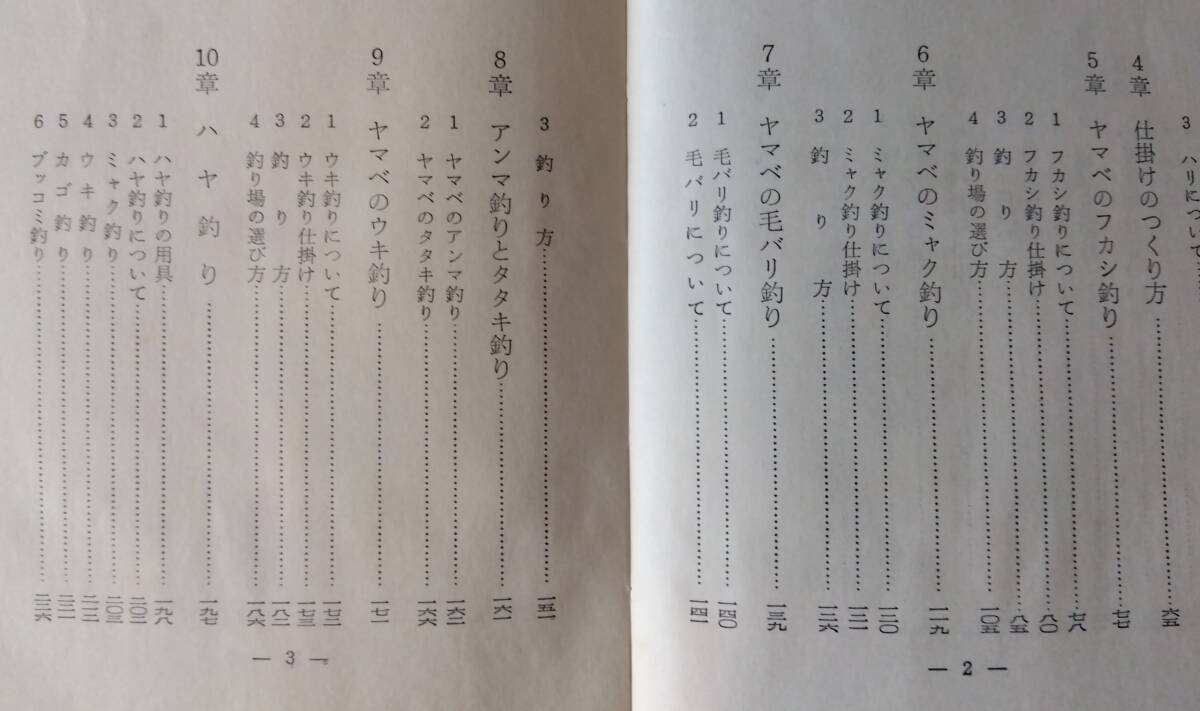 3 ハリについて
4章 仕掛けのつくり方……六五
5章 ヤマベのフカシ釣り……七七
1 フカシ釣りについて……七八
2 フカシ釣り仕掛け……八〇
3 釣り方……八五
4 釣り場の選び方……一〇五
6章 ヤマベのミャク釣り……一一九
1 ミャク釣りについて……一二〇
2 ミャク釣り仕掛け……一二一
3 釣り方……一二六
7章 ヤマベの毛バリ釣り……一三九
1 毛バリ釣りについて……一四〇
2 毛バリについて……一四一
— 2 —
3 釣り方……一五一
8章 アンマ釣りとタタキ釣り……一六一
1 ヤマベのアンマ釣り……一六二
2 ヤマベのタタキ釣り……一六六
9章 ヤマベのウキ釣り……一七一
1 ウキ釣りについて……一七二
2 ウキ釣り仕掛け……一七三
3 釣り方……一八二
4 釣り場の選び方……一八六
10章 ハヤ釣り……一九七
1 ハヤ釣りの用具……一九八
2 ハヤ釣りについて……二〇二
3 ミャク釣り……二〇三
4 ウキ釣り……二一二
5 カゴ釣り……二二一
6 ブッコミ釣り……二二六
— 3 —